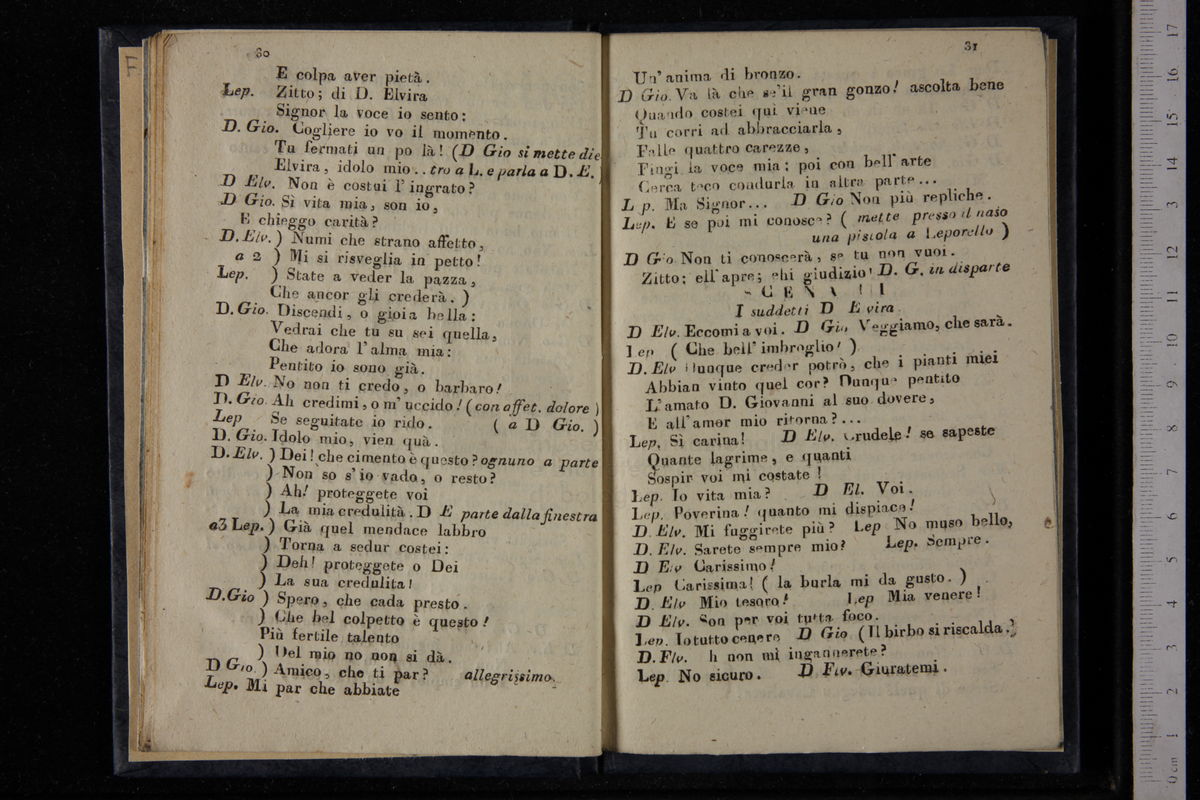 F
30
E colpa aver pietà.
Lep. Zitto; di D. Elvira
Signor la voce io sento:
D. Gio. Cogliere io vo il momento.
Tu fermati un po là! (D Gio si mette die
Elvira, idolo mio .. tro a L. e parla a D. E.
D Elv. Non è costui l'ingrato?
D Gio. Sì vita mia, son io,
E chieggo carità?
D. Elv. ) Numi che strano affetto,
a 2 ) Mi si risveglia in petto!
Lep. ) State a veder la pazza,
Che ancor gli crederà. )
D. Gio. Discendi, o gioia bella:
Vedrai che tu su sei quella,
Che adora l'alma mia:
Pentito io sono già.
D Elv. No non ti credo, o barbaro!
D. Gio. Ah credimi, o m'uccido! (con affet. dolore )
Lep Se seguitate io rido. ( a D Gio. )
D. Gio. Idolo mio, vien quà.
D. Elv. ) Dei! che cimento è questo? ognuno a parte
) Non so s'io vado, o resto?
) Ah! proteggete voi
) La mia credulità. D E parte dalla finestra
a3 Lep. ) Già quel mendace labbro
) Torna a sedur costei:
) Deh! proteggete o Dei
) La sua credulita!
D. Gio ) Spero, che cada presto.
) Che bel colpetto è questo!
Più fertile talento
) Del mio no non si dà.
D Gio. ) Amico, che ti par? allegrissimo.
Lep. Mi par che abbiate
31
Un'anima di bronzo.
D Gio. Va là che se'il gran gonzo! ascolta bene
Quando costei qui viene
Tu corri ad abbracciarla,
Falle quattro carezze,
Fingi la voce mia; poi con bell'arte
Cerca teco condurla in altra parte...
L p. Ma Signor... D Gio Non più repliche.
Lep. E se poi mi conosce? ( mette presso il naso
una pistola a Leporello )
D Gio Non ti conoscerà, se tu non vuoi.
Zitto; ell'apre; ehi giudizio! D. G. in disparte
SCENA II
I suddetti D Elvira.
D Elv. Eccomi a voi. D Gio, Veggiamo, che sarà.
Lep ( Che bell'imbroglio! )
D. Elv Dunque creder potrò, che i pianti miei
Abbian vinto quel cor? Dunque pentito
L'amato D. Giovanni al suo dovere,
E all'amor mio ritorna?...
Lep, Sì carina! D Elv. Crudele! se sapeste
Quante lagrime, e quanti
Sospir voi mi costate!
Lep. Io vita mia? D El. Voi.
Lep. Poverina! quanto mi dispiace!
D. Elv. Mi fuggirete più? Lep No muso bello,
D. Elv. Sarete sempre mio? Lep. Sempre.
D Elv Carissimo!
Lep Carissima! ( la burla mi da gusto. )
D. Elv Mio tesoro! Lep Mia venere!
D Elv. Son per voi tutta foco.
Lep. Io tutto cenere D Gio (Il birbo si riscalda.)
D. Elv. E non mi ingannerete?
Lep. No sicuro. D Elv. Giuratemi.
0 cm 1 2 3 4 5 6 7 8 9 10 11 12 13 14 15 16 17